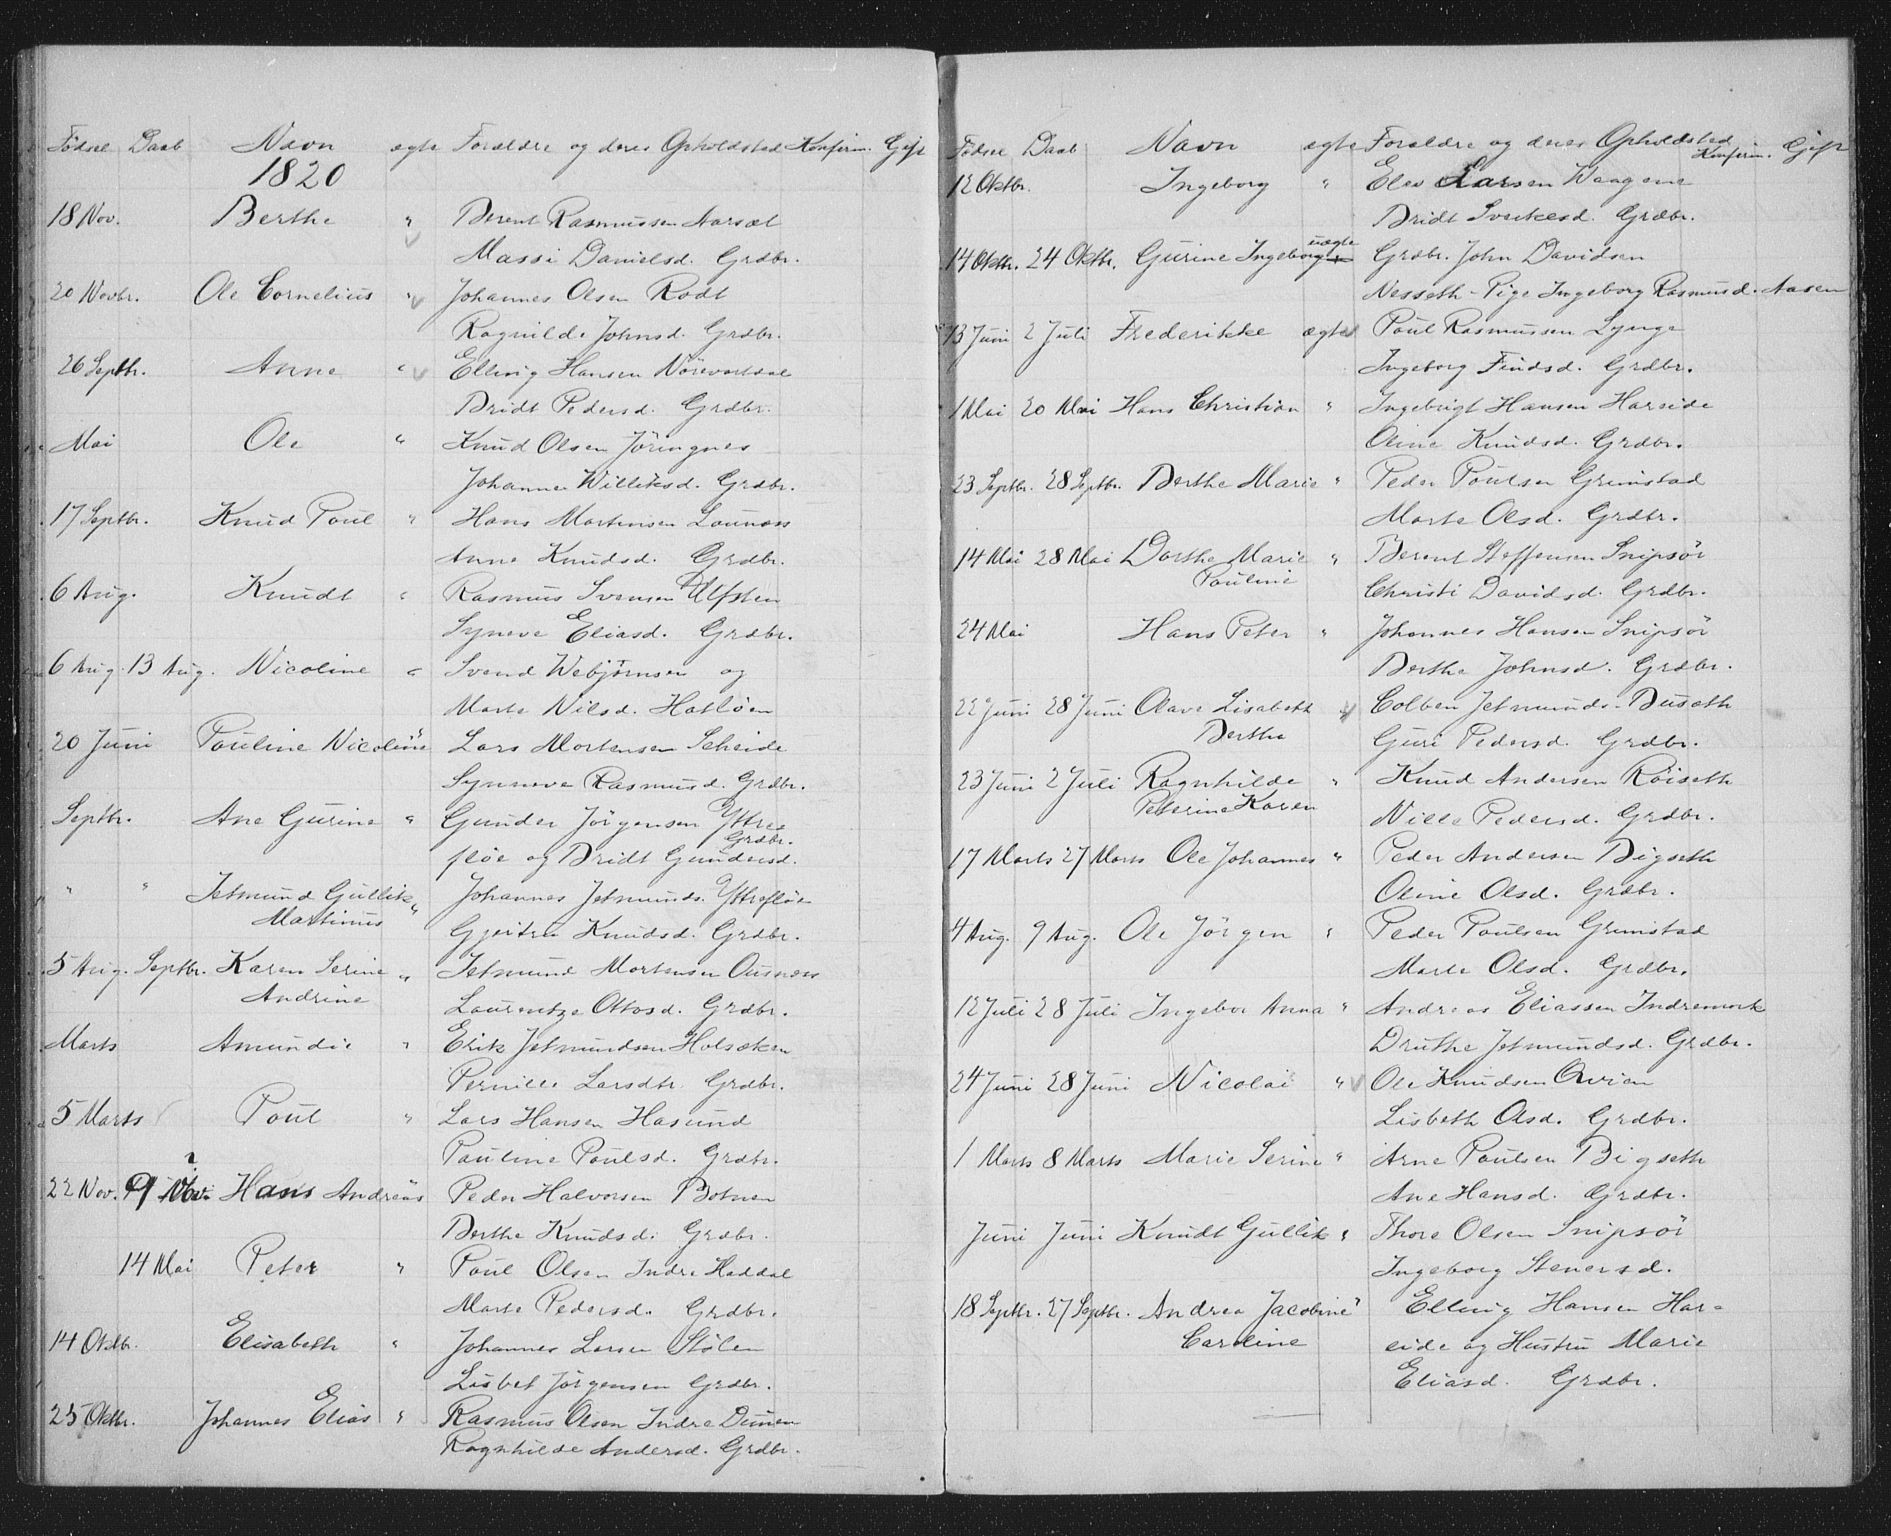 Fødsel Daab Navn ægte Forældre og deres Opholdsted Konfirm. Gift
1820
18 Nov. Berthe " Berent Rasmussen Aarsæt
Massi Danielsd. Grdbr.
20 Novbr. Ole Cornelius " Johannes Olsen Rødt
Ragnilde Johnsd. Grdbr.
26 Septbr. Anne " Elling Hansen Nørevartdal
Bridt Pedersd. Grdbr.
Mai Ole " Knud Olsen Jøringnes
Johanne Williksd. Grdbr.
17 Septbr. Knud Poul " Hans Martinsen Lounæs
Anne Knudsd. Grdbr.
6 Aug. Knudt " Rasmus Svensen Ulfsten
Syneve Eliasd. Grdbr.
6 Aug. 13 Aug. Nicoline " Svend Webjørnsen og
Marte Nilsd. Hatløen
20 Juni Pauline Nicoline " Lars Mortensen Scheide
Synneve Rasmusd. Grdbr.
Septbr. Ane Gurine " Gunder Jørgensen Yttre-
Grdbr.
fløe og Bridt Gundersd.
" " Jetmund Gullik " Johannes Jetmunds. Yttrefløe
Martinus
Gjertru Knudsd. Grdbr.
5 Aug. Septbr. Karen Serine " Jetmund Mortensen Ousnæs
Andrine
Laurentze Ottosd. Grdbr.
Marts Amundie " Erik Jetmundsen Holsæken
Pernille Larsdtr. Grdbr.
5 Marts Poul " Lars Hansen Hasund
Pauline Poulsd. Grdbr.
22 Nov. 9 Nov. ? Hans Andreas Peder Halvorsen Botnen
Berthe Knudsd. Grdbr.
14 Mai Peter " Poul Olsen Indre Haddal
Marte Pedersd. Grdbr.
14 Oktbr. Elisabeth " Johannes Larsen Stølen
Lisbet Jørgensen Grdbr.
25 Oktbr. Johannes Elias " Rasmus Olsen Indre Dimen
Ragnhilde Andersd. Grdbr.
Fødsel Daab Navn ægte Forældre og deres Opholdsted Konfirm. Gift
12 Oktbr. Ingeborg " Elev Larsen Waagene
Bridt Sverkesd. Grdbr.
uægte
14 Oktbr. 24 Oktbr. Gurine Ingeborg Grdbr. John Davidsen
Nesseth - Pige Ingeborg Rasmusd. Aasen
13 Juni 2 Juli Frederikke ægte Poul Rasmussen Lynge
Ingeborg Findsd. Grdbr.
1 Mai 20 Mai Hans Christian " Ingebrigt Hansen Hareide
Oline Knudsd. Grdbr.
23 Septbr. 28 Septbr. Berthe Marie " Peder Poulsen Grimstad
Marte Olsd. Grdbr.
14 Mai 28 Mai Dorthe Marie " Berent Steffensen Snipsør
Pauline
Christi Davidsd. Grdbr.
24 Mai Hans Peter " Johannes Hansen Snipsør
Berthe Johnsd. Grdbr.
22 Juni 28 Juni Olave Lisabeth " Colben Jetmunds. Buseth
Berthe
Guri Pedersd. Grdbr.
23 Juni 2 Juli Ragnhilde " Knud Andersen Røiseth
Peterine Karen
Nille Pedersd. Grdbr.
17 Marts 27 Marts Ole Johannes " Peder Andersen Bigseth
Oline Olsd. Grdbr.
4 Aug. 9 Aug. Ole Jørgen " Peder Poulsen Grimstad
Marte Olsd. Grdbr.
12 Juli 28 Juli Ingebor Anna " Andreas Eliassen Indremork
Druthe Jetmundsd. Grdbr.
24 Juni 28 Juni Nicolai " Ole Knudsen Qvien
Lisbeth Olsd. Grdbr.
1 Marts 8 Marts Marie Serine " Arne Poulsen Bigseth
Ane Hansd. Grdbr.
Juni Juni Knudt Gullik " Thore Olsen Snipsør
Ingeborg Stenersd.
18 Septbr. 27 Septbr. Andrea Jacobine " Elling Hansen Har-
Caroline eide og Hustru Marie
Eliasd. Grdbr.